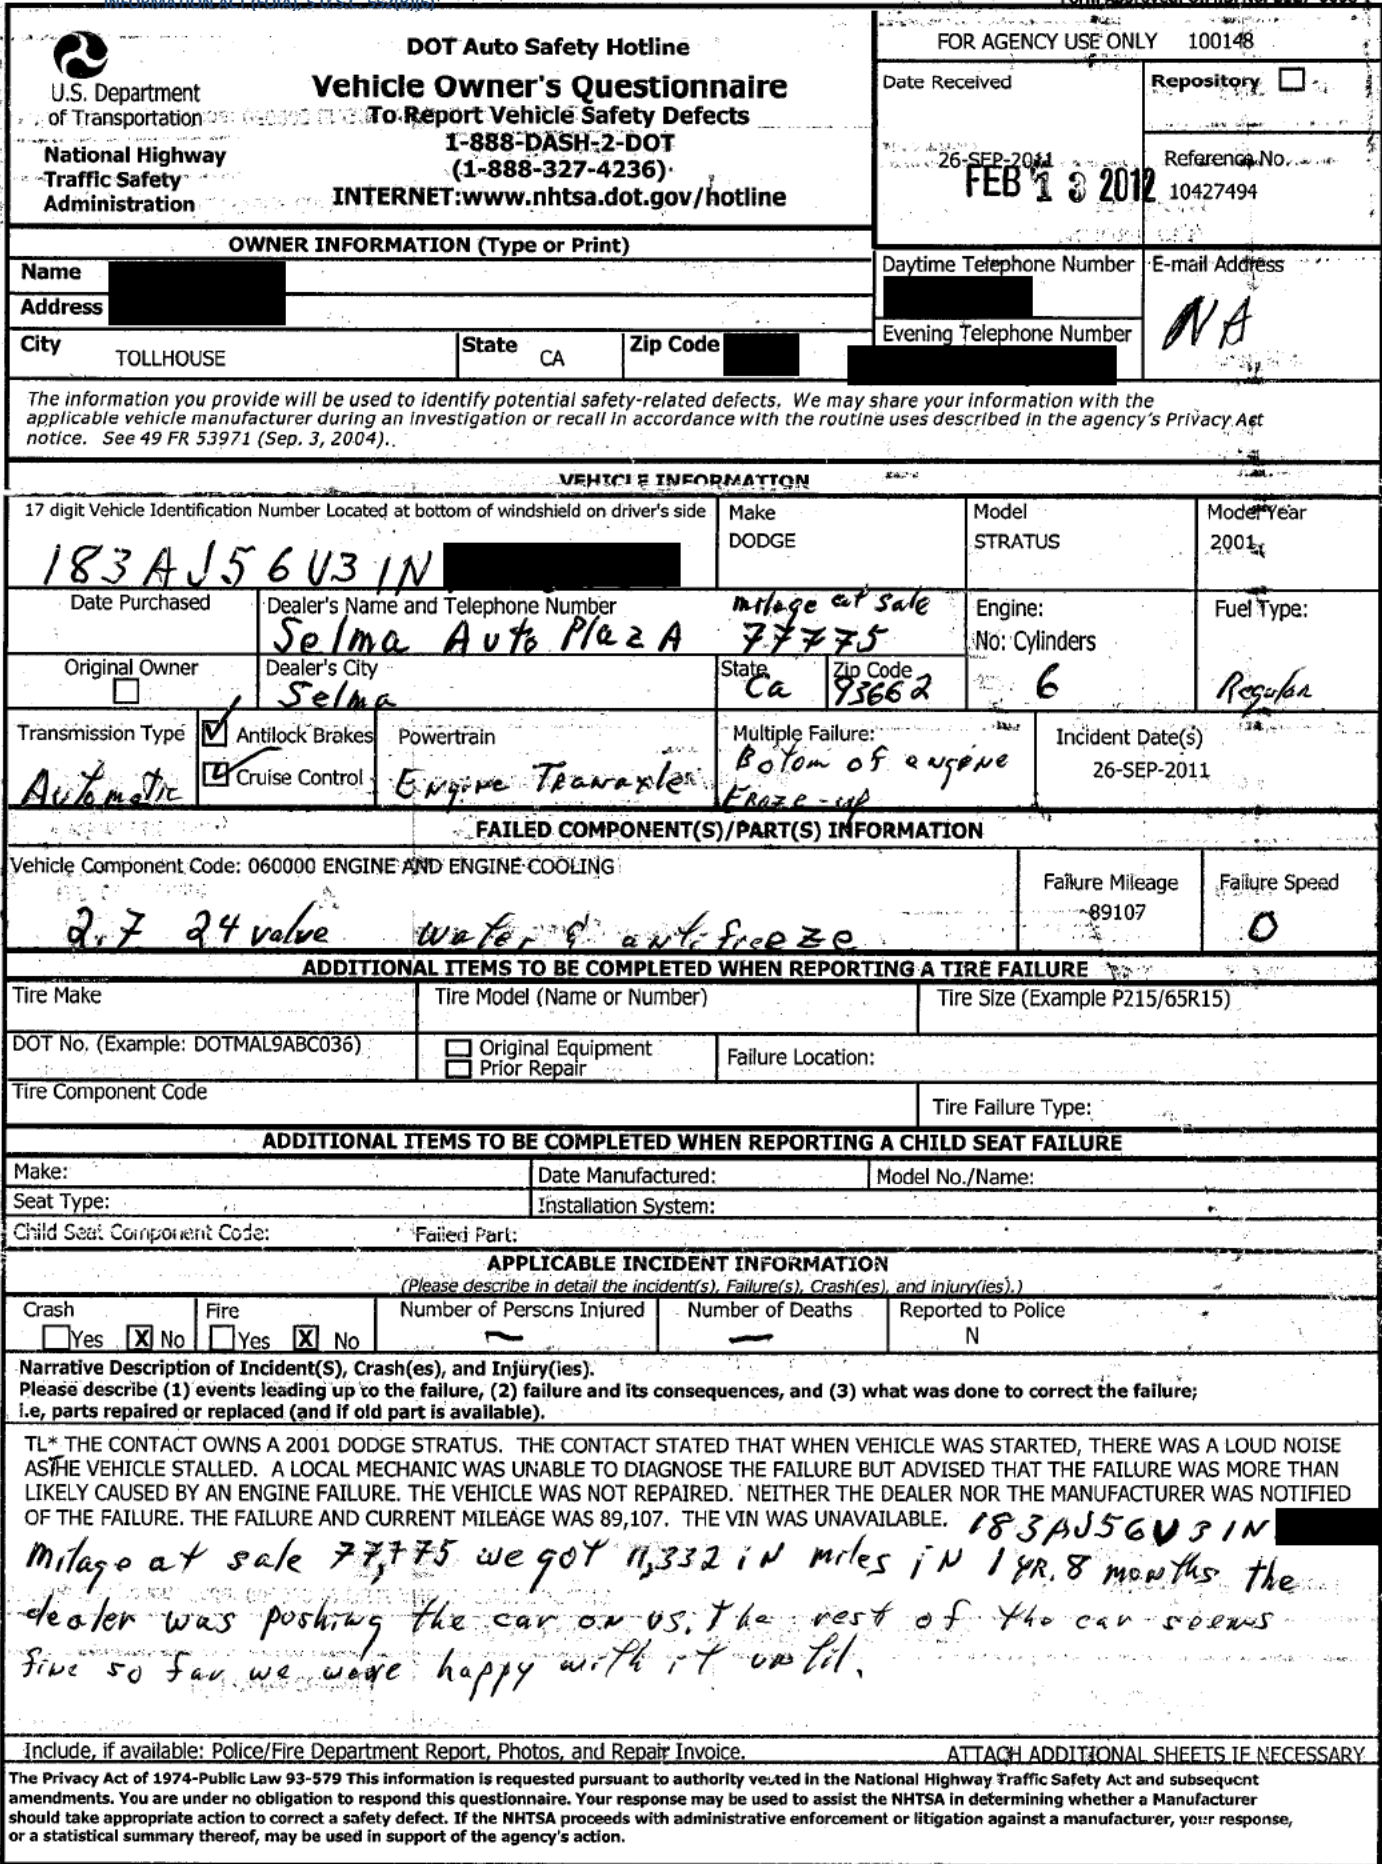 INFORMATION ACT (FOIA), 5 U.S.C. 552(b)(6)
DOT Auto Safety Hotline
Vehicle Owner's Questionnaire
To Report Vehicle Safety Defects
1-888-DASH-2-DOT
(1-888-327-4236)
INTERNET:www.nhtsa.dot.gov/hotline
U.S. Department
of Transportation
National Highway
Traffic Safety
Administration
FOR AGENCY USE ONLY 100148
Date Received
26-SEP-2011
FEB 13 2012
Repository
Reference No.
10427494
OWNER INFORMATION (Type or Print)
Name
Address
City TOLLHOUSE State CA Zip Code
Daytime Telephone Number
Evening Telephone Number
E-mail Address
NA
The information you provide will be used to identify potential safety-related defects. We may share your information with the
applicable vehicle manufacturer during an investigation or recall in accordance with the routine uses described in the agency's Privacy Act
notice. See 49 FR 53971 (Sep. 3, 2004)..
VEHICLE INFORMATION
17 digit Vehicle Identification Number Located at bottom of windshield on driver's side
183AJ56U31N
Make
DODGE
Model
STRATUS
Model Year
2001
Date Purchased
Dealer's Name and Telephone Number
Selma Auto PlazA
milage at sale
77775
Engine:
No: Cylinders
6
Fuel Type:
Regular
Original Owner
Dealer's City
Selma
State
Ca
Zip Code
93662
Transmission Type
Automatic
Antilock Brakes
Cruise Control
Powertrain
Engine Tranaxle
Multiple Failure:
Botom of engine
Fraze-up
Incident Date(s)
26-SEP-2011
FAILED COMPONENT(S)/PART(S) INFORMATION
Vehicle Component Code: 060000 ENGINE AND ENGINE COOLING
2.7 24 valve water & antifreeze
Failure Mileage
89107
Failure Speed
0
ADDITIONAL ITEMS TO BE COMPLETED WHEN REPORTING A TIRE FAILURE
Tire Make
Tire Model (Name or Number)
Tire Size (Example P215/65R15)
DOT No. (Example: DOTMAL9ABC036)
Original Equipment
Prior Repair
Failure Location:
Tire Component Code
Tire Failure Type:
ADDITIONAL ITEMS TO BE COMPLETED WHEN REPORTING A CHILD SEAT FAILURE
Make:
Date Manufactured:
Model No./Name:
Seat Type:
Installation System:
Child Seat Component Code:
Failed Part:
APPLICABLE INCIDENT INFORMATION
(Please describe in detail the incident(s), Failure(s), Crash(es), and injury(ies).)
Crash
Yes X No
Fire
Yes X No
Number of Persons Injured
—
Number of Deaths
—
Reported to Police
N
Narrative Description of Incident(S), Crash(es), and Injury(ies).
Please describe (1) events leading up to the failure, (2) failure and its consequences, and (3) what was done to correct the failure;
i.e, parts repaired or replaced (and if old part is available).
TL* THE CONTACT OWNS A 2001 DODGE STRATUS. THE CONTACT STATED THAT WHEN VEHICLE WAS STARTED, THERE WAS A LOUD NOISE
AS THE VEHICLE STALLED. A LOCAL MECHANIC WAS UNABLE TO DIAGNOSE THE FAILURE BUT ADVISED THAT THE FAILURE WAS MORE THAN
LIKELY CAUSED BY AN ENGINE FAILURE. THE VEHICLE WAS NOT REPAIRED. NEITHER THE DEALER NOR THE MANUFACTURER WAS NOTIFIED
OF THE FAILURE. THE FAILURE AND CURRENT MILEAGE WAS 89,107. THE VIN WAS UNAVAILABLE. 183AJ56U31N
Milage at sale 77,775 we got 11,332 in miles in 1 YR. 8 months the
dealer was pushing the car on us. The rest of the car seems
fine so far we were happy with it until.
Include, if available: Police/Fire Department Report, Photos, and Repair Invoice.
ATTACH ADDITIONAL SHEETS IF NECESSARY
The Privacy Act of 1974-Public Law 93-579 This information is requested pursuant to authority vested in the National Highway Traffic Safety Act and subsequent
amendments. You are under no obligation to respond this questionnaire. Your response may be used to assist the NHTSA in determining whether a Manufacturer
should take appropriate action to correct a safety defect. If the NHTSA proceeds with administrative enforcement or litigation against a manufacturer, your response,
or a statistical summary thereof, may be used in support of the agency's action.